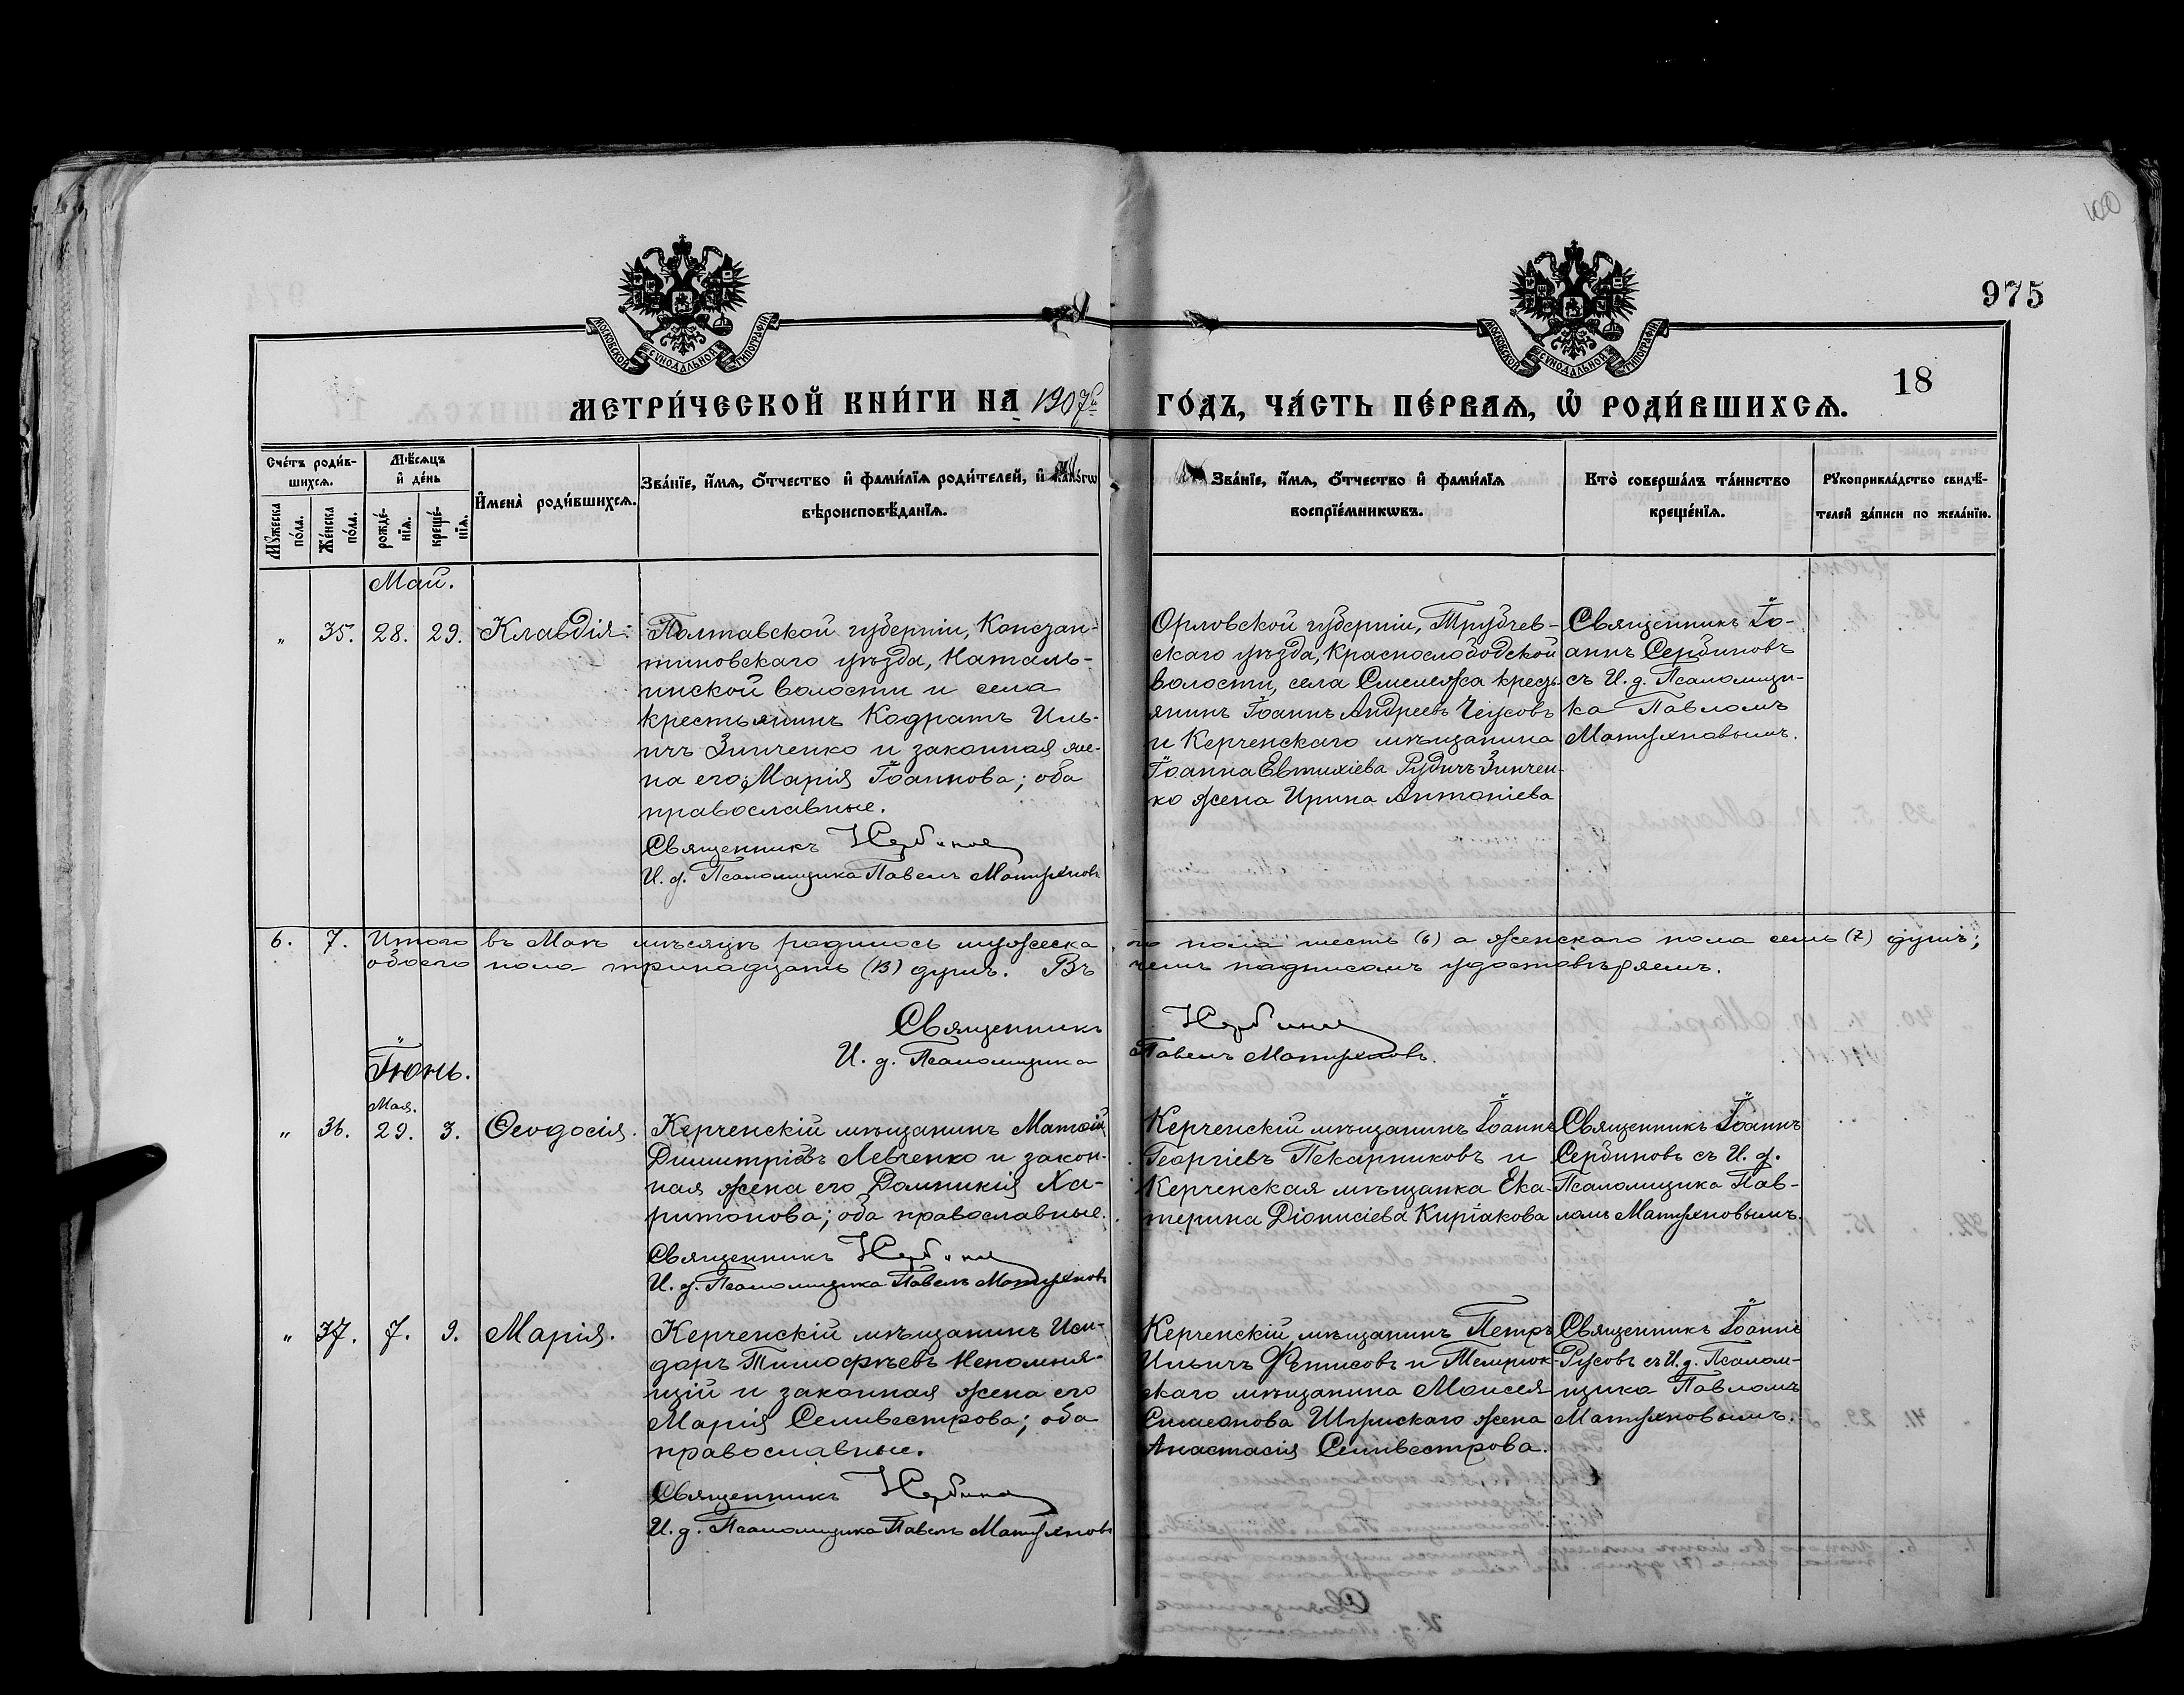 100
975
18
МОСКОВСКОЙ СѴНОДАЛЬНОЙ ТИПОГРАФІИ
МОСКОВСКОЙ СѴНОДАЛЬНОЙ ТИПОГРАФІИ
МЕТРИ́ЧЕСКОЙ КНИ́ГИ НА 1907й ГО́ДЪ, ЧА́СТЬ ПЕ́РВАѦ, Ѡ҆ РОДИ́ВШИХСѦ.
Сче́тъ роди́в-
шихсѧ.
Мѣ́сѧцъ
и҆ де́нь
Мꙋ́жеска
по́ла.
Же́нска
по́ла.
рожде́-
нїѧ.
креще́-
нїѧ.
И҆мена̀ роди́вшихсѧ.
Зва́нїе, и҆́мѧ, ѻ҆́тчество и҆ фами́лїѧ роди́телей, и҆ како́гѡ
вѣроисповѣ́данїѧ.
Зва́нїе, и҆́мѧ, ѻ҆́тчество и҆ фами́лїѧ
воспрїе́мникѡвъ.
Кто̀ соверша́лъ та́инство
креще́нїѧ.
Рꙋкоприкла́дство свидѣ́-
телей за́писи по жела́нїю.
Май.
" 35. 28. 29. Клавдія.
Полтавской губерніи, Констан-
тиновскаго уѣзда, Наталь-
инской волости и села
крестьянинъ Кодратъ Иль-
ичъ Зинченко и законная же-
на его Марія Іоаннова; оба
православные.
Священникъ Сербиновъ
И. д. Псаломщика Павелъ Матухновъ
Орловской губерніи, Трубчев-
скаго уѣзда, Краснослободской
волости, села кресть-
янинъ Іоаннъ Андреевъ Чеусовъ
и Керченскаго мѣщанина
Іоанна Евтихіева Рудичъ Зинчен-
ко жена Ирина Антоніева
Священникъ Іо-
аннъ Сербиновъ
съ И. д. Псаломщи-
ка Павломъ
Матухновымъ.
6. 7. Итого въ Маѣ мѣсяцѣ родилось мужеска го пола шесть (6) а женскаго пола семь (7) душъ;
обоего пола тринадцать (13) душъ. Въ чемъ подписомъ удостовѣряемъ.
Священникъ Сербиновъ
И. д. Псаломщика Павелъ Матухновъ.
Іюнь.
Мая.
" 36. 29. 3. Ѳеодосія.
Керченскій мѣщанинъ Матѳій
Димитріевъ Левченко и закон-
ная жена его Домникія Ха-
ритонова; оба православные.
Священникъ Сербиновъ
И. д. Псаломщика Павелъ Матухновъ
Керченскій мѣщанинъ Іоаннъ
Георгіевъ Пекарниковъ и
Керченская мѣщанка Ека-
терина Діонисіева Киріакова
Священникъ Іоаннъ
Сербиновъ съ И. д.
Псаломщика Пав-
ломъ Матухновымъ.
" 37. 7. 9. Марія.
Керченскій мѣщанинъ Иси-
доръ Тимофѣевъ Непомня-
щій и законная жена его
Марія Селивестрова; оба
православные.
Священникъ Сербиновъ
И. д. Псаломщика Павелъ Матухновъ
Керченскій мѣщанинъ Петръ
Ильичъ Фетисовъ и Темрюк-
скаго мѣщанина Моисея
Симеонова жена
Анастасія Селивестрова.
Священникъ Іоаннъ
Русовъ съ И. д. Псалом-
щика Павломъ
Матухновымъ.